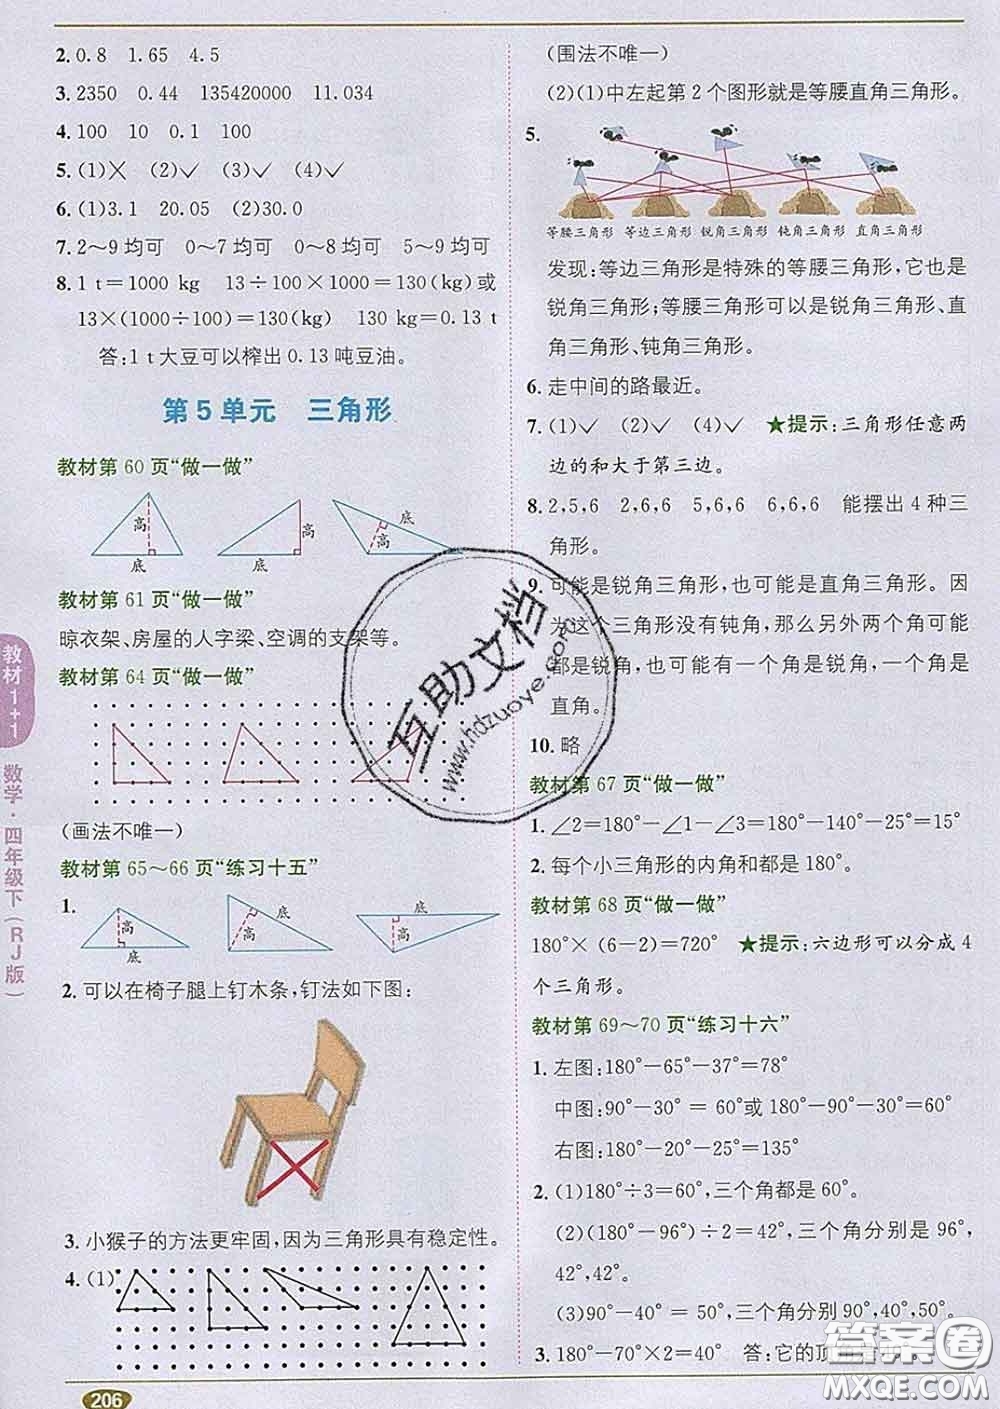 2. 0.8 1.65 4.5
3. 2350 0.44 135420000 11.034
4. 100 10 0.1 100
5. (1)× (2)✓ (3)✓ (4)✓
6. (1)3.1 20.05 (2)30.0
7. 2～9均可 0～7均可 0～8均可 5～9均可
8. 1 t=1000 kg 13÷100×1000=130(kg)或
13×(1000÷100)=130(kg) 130 kg=0.13 t
答:1 t大豆可以榨出0.13吨豆油。
第5单元 三角形
教材第60页“做一做”
高 底 高 底 高 底
教材第61页“做一做”
晾衣架、房屋的人字梁、空调的支架等。
教材第64页“做一做”
(画法不唯一)
教材第65～66页“练习十五”
1.
高 底 高 底 高 底
2. 可以在椅子腿上钉木条,钉法如下图:
3. 小猴子的方法更牢固,因为三角形具有稳定性。
4. (1)
206
教材1+1 数学·四年级下(RJ版)
(围法不唯一)
(2)(1)中左起第2个图形就是等腰直角三角形。
5.
等腰三角形 等边三角形 锐角三角形 钝角三角形 直角三角形
发现:等边三角形是特殊的等腰三角形,它也是
锐角三角形;等腰三角形可以是锐角三角形、
直角三角形、钝角三角形。
6. 走中间的路最近。
7. (1)✓ (2)✓ (4)✓ ★提示:三角形任意两
边的和大于第三边。
8. 2,5,6 2,6,6 5,6,6 6,6,6 能摆出4种三
角形。
9. 可能是锐角三角形,也可能是直角三角形。因
为这个三角形没有钝角,那么另外两个角可能
都是锐角,也可能有一个角是锐角,一个角是
直角。
10. 略
教材第67页“做一做”
1. ∠2=180°-∠1-∠3=180°-140°-25°=15°
2. 每个小三角形的内角和都是180°。
教材第68页“做一做”
180°×(6-2)=720° ★提示:六边形可以分成4
个三角形。
教材第69～70页“练习十六”
1. 左图:180°-65°-37°=78°
中图:90°-30°=60°或180°-90°-30°=60°
右图:180°-20°-25°=135°
2. (1)180°÷3=60°,三个角都是60°。
(2)(180°-96°)÷2=42°,三个角分别是96°,
42°,42°。
(3)90°-40°=50°,三个角分别90°,40°,50°。
3. 180°-70°×2=40° 答:它的顶
互助文档
www.hdzuoye.com
答案圈
MXQE.COM